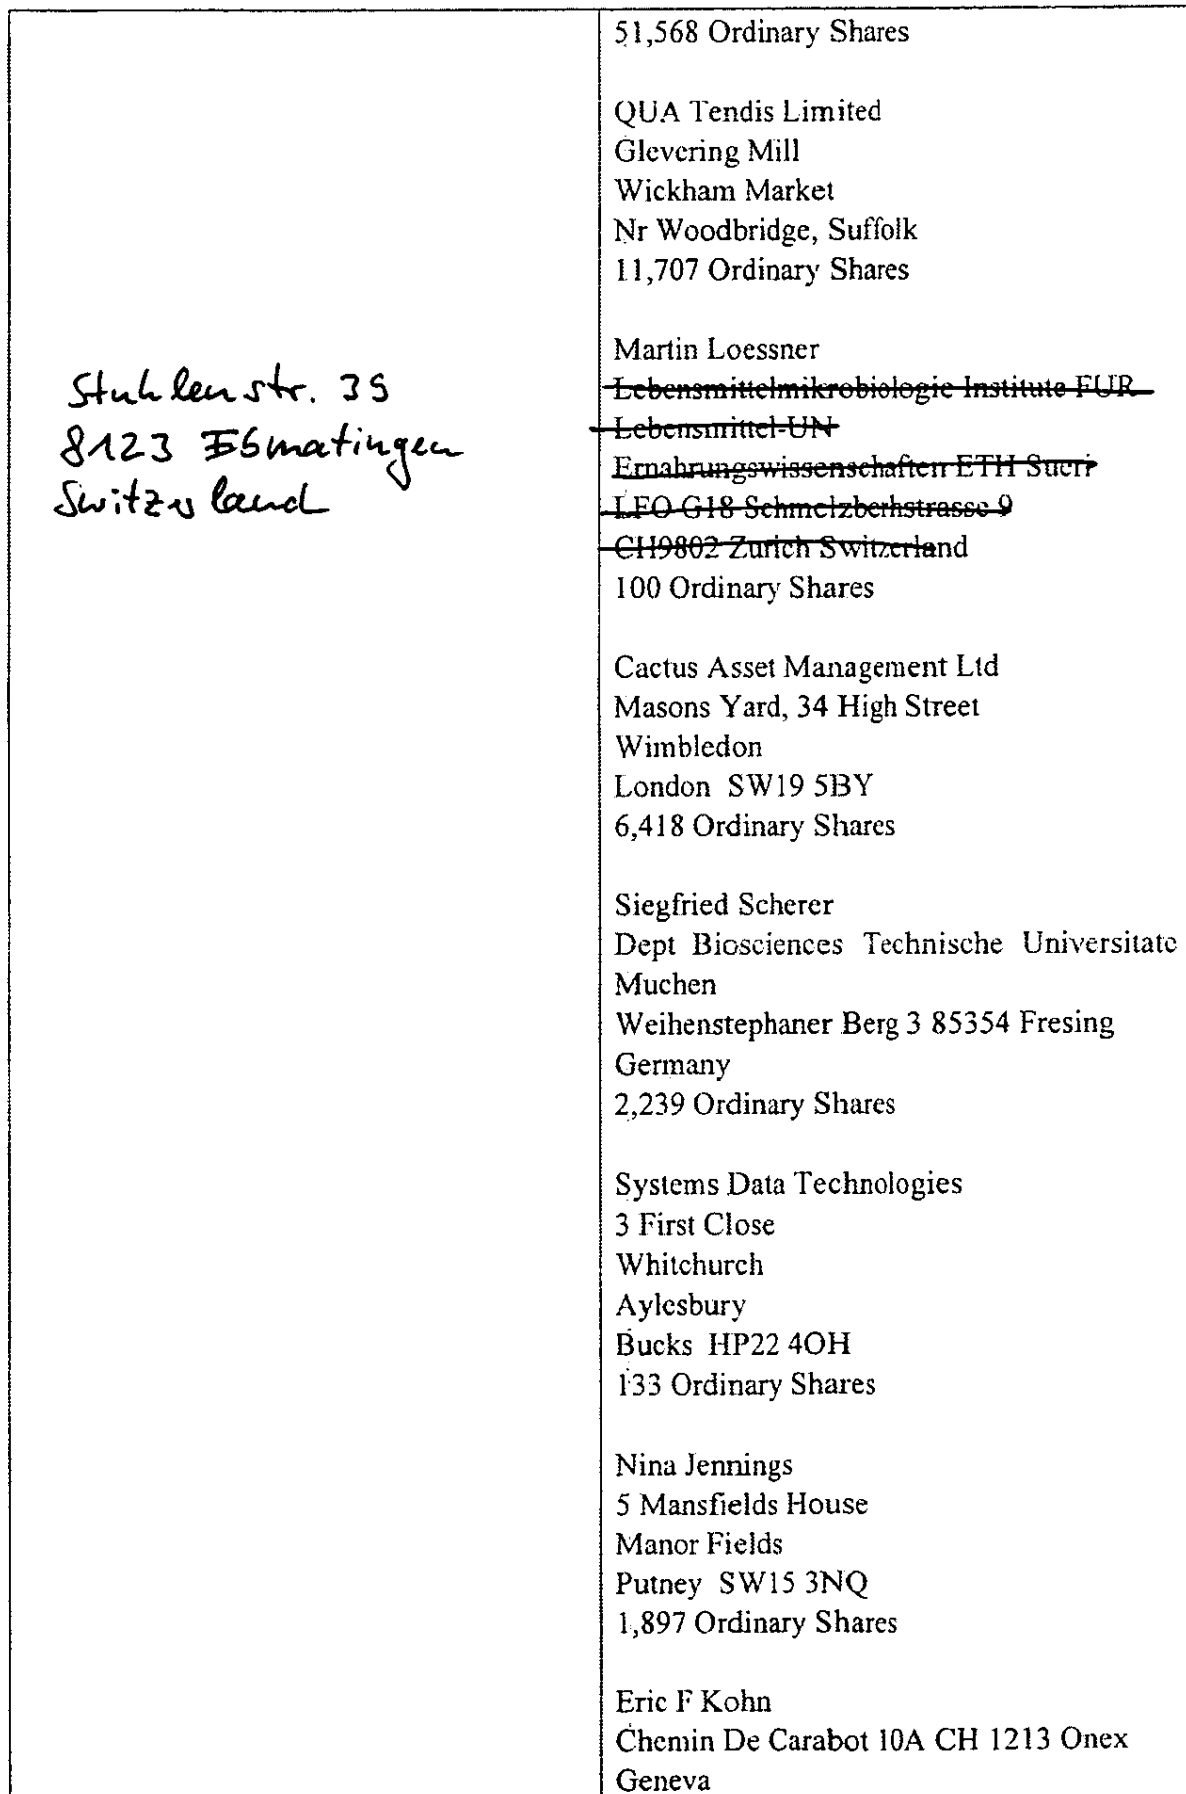 51,568 Ordinary Shares
QUA Tendis Limited
Glevering Mill
Wickham Market
Nr Woodbridge, Suffolk
11,707 Ordinary Shares
Martin Loessner
Lebensmittelmikrobiologie Institute FUR
Lebensmittel-UN
Ernahrungswissenschaften ETH Sucri
LFO G18 Schmelzberhstrasse 9
CH9802 Zurich Switzerland
100 Ordinary Shares
Stuhlenstr. 35
8123 Ebmatingen
Switzerland
Cactus Asset Management Ltd
Masons Yard, 34 High Street
Wimbledon
London SW19 5BY
6,418 Ordinary Shares
Siegfried Scherer
Dept Biosciences Technische Universitate
Muchen
Weihenstephaner Berg 3 85354 Fresing
Germany
2,239 Ordinary Shares
Systems Data Technologies
3 First Close
Whitchurch
Aylesbury
Bucks HP22 4OH
133 Ordinary Shares
Nina Jennings
5 Mansfields House
Manor Fields
Putney SW15 3NQ
1,897 Ordinary Shares
Eric F Kohn
Chemin De Carabot 10A CH 1213 Onex
Geneva